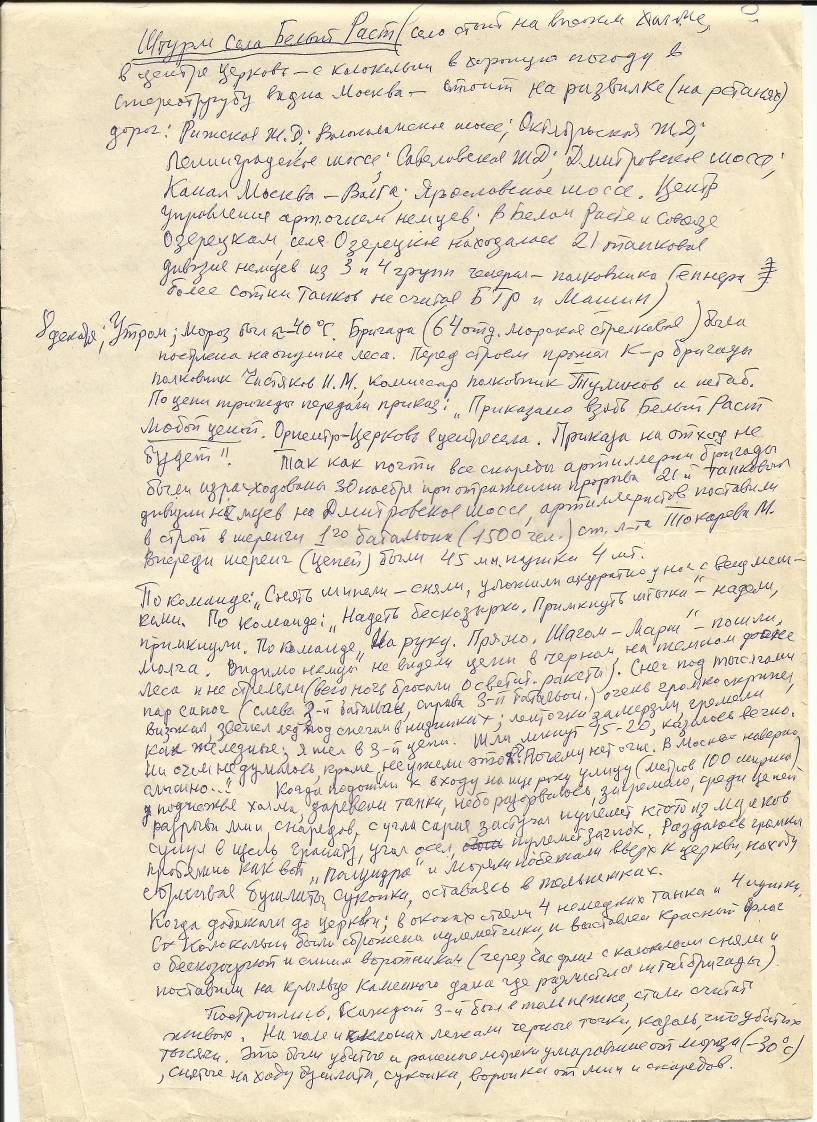 Штурм села Белый Раст (село стоит на высоком холме,
в центре церковь – с колокольни в хорошую погоду в
стереотрубу видна Москва – стоит на развилке (на ростанях)
дорог: Рижская Ж.Д.; Волоколамское шоссе; Октябрьская Ж.Д;
Ленинградское шоссе; Савеловская ЖД; Дмитровское шоссе;
Канал Москва – Волга; Ярославское шоссе. Центр
управления арт.огнем немцев; В Белом Расте и
Озерецком, селе Озерецкое находилась 21 танковая
дивизия немцев из 3 и 4 групп генерал – полковника Гепнера
более сотни танков не считая БТр и Машин)
8 декабря; Утром; мороз был ~ -40°С. Бригада (64 отд. морская стрелковая) была
построена на опушке леса. Перед строем прошел К-р бригады
полковник Чистяков И.М, комиссар полковник Тулинов и штаб.
По цепи трижды передали приказ: „Приказано взять Белый Раст
любой ценой. Ориентр-Церковь в центре села. Приказа на отход не
будет"!! Так как почти все снаряды артиллерии бригады
были израсходованы 30 ноября при отражении прорыва 21-й танковой
дивизии немцев на Дмитровское шоссе, артиллеристов поставили
в строй в шеренги 1го батальона (1500 чел.) ст. л-та Токарева М.
Впереди шеренг (цепей) были 45 мм. пушки 4 шт.
По команде: „Снять шинели – сняли, уложили аккуратно у ног с вещмеш-
ками. По команде: „Надеть бескозырки. Примкнуть штыки" – надели,
примкнули. По команде „На руку. Прямо. Шагом – Марш" – пошли,
молча. Видимо немцы не видели цепи в черном на темном фоне
леса и не стреляли (всю ночь бросали осветит. ракеты). Снег под тысячами
пар сапог (слева 2-й батальон, справа 3-й батальон) очень громко скрипел,
визжал, звенел лед под снегом в низинках; ленточки замерзли, гремели
как железные; я шел в 3-й цепи. Шли минут 15-20, казалось вечно.
Ни о чем не думалось, кроме, неужели это я? Почему нет огня. В Москве наверно
слышно..! Когда подошли к входу на широкую улицу (метров 100 ширина)
у подножья холма, заревели танки, небо разорвалось, загремело, среди цепей
разрывы мин, снарядов, с угла сарая застучал пулемет кто то из моряков
сунул в щель гранату, угол осел, пулемет заглох. Раздалось громкое
протяжное как вой „Полундра" и моряки побежали вверх к церкви, на ходу
сбрасывая бушлаты, суконки, оставаясь в тельняшках.
Когда добежали до церкви; в окопах стояли 4 немецких танка и 4 пушки.
С колокольни были сброшены пулеметчики, и выставлен Красный флаг
с бескозыркой и синим воротником (через час флаг с колокольни сняли и
поставили на крыльцо каменного дома где разместился штаб бригады)
Построились. Каждый 3-й был в тельняшке, стали считать
живых. На поле и склонах лежали черные точки, казалось, что убитых
тысячи. Это были убитые и раненые моряки умиравшие от мороза (–30°С)
, снятые на ходу бушлаты, суконки, воронки от мин и снарядов.